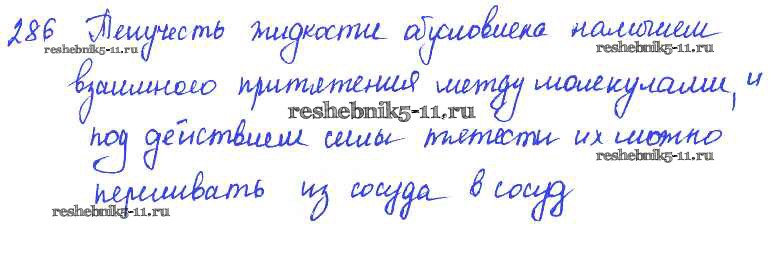 286 Текучесть жидкости обусловлена наличием
reshebnik5-11.ru reshebnik5-11.ru
взаимного притяжения между молекулами, и
reshebnik5-11.ru
под действием силы тяжести их можно
reshebnik5-11.ru
переливать из сосуда в сосуд
reshebnik5-11.ru